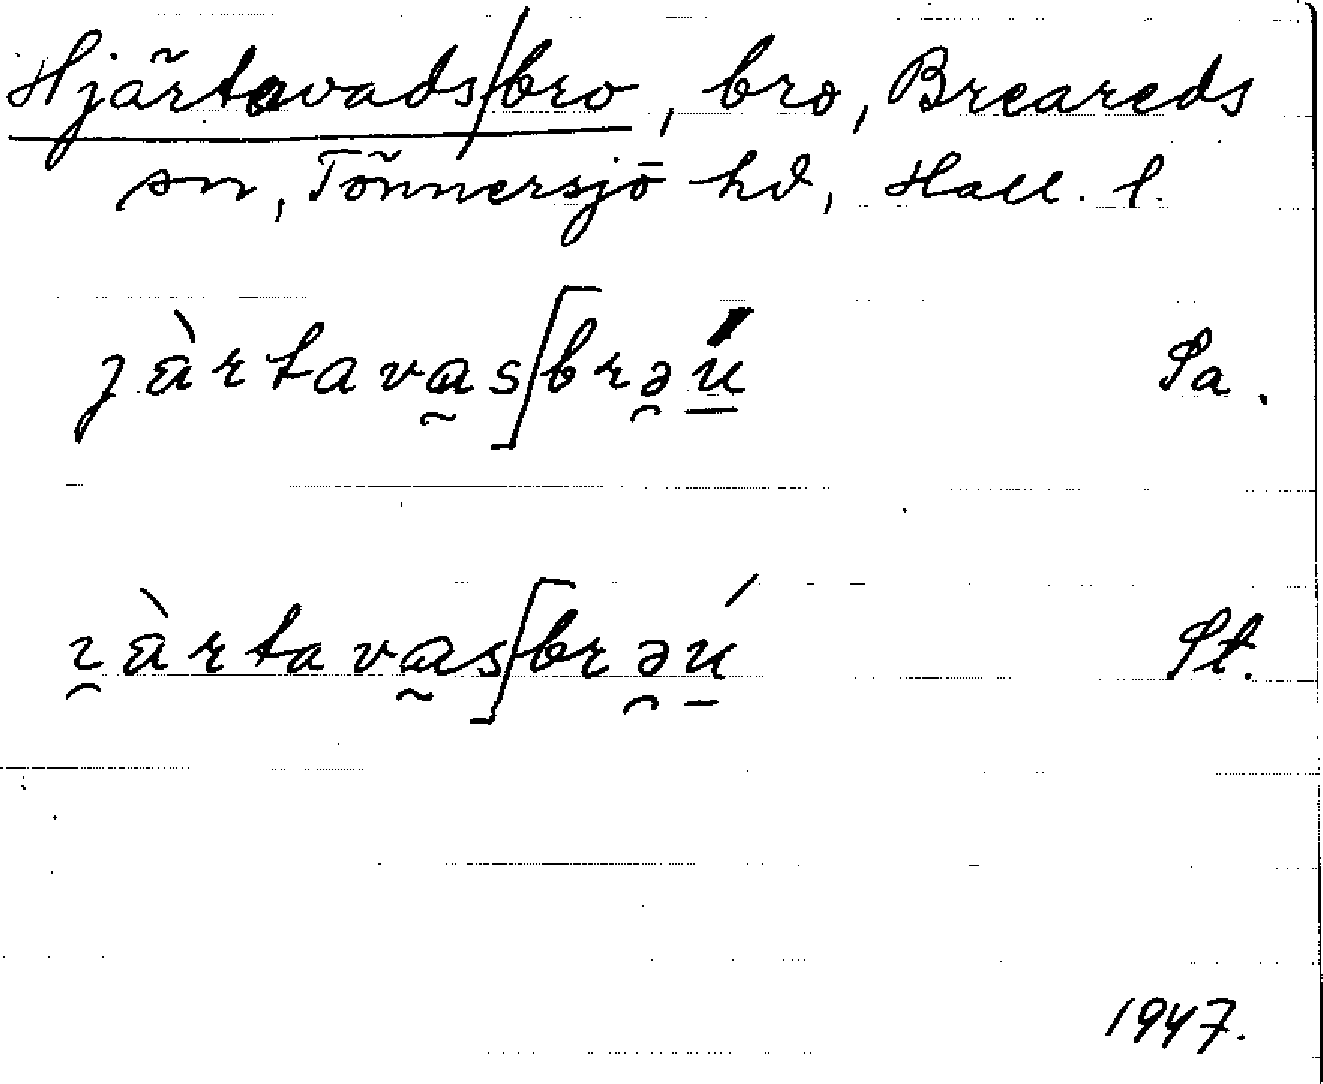 Hjärtavads/bro, bro, Breareds
sn, Tönnersjö hd, Hall. l.
jàrtavas/brəú Sa.
ɿàrtavas/brəú St.
1947.